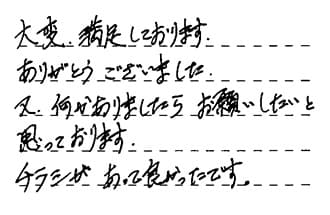 大変、満足しております.
ありがとうございました.
又、何かありましたら お願いしたいと
思っております.
チラシが あって良かったです。